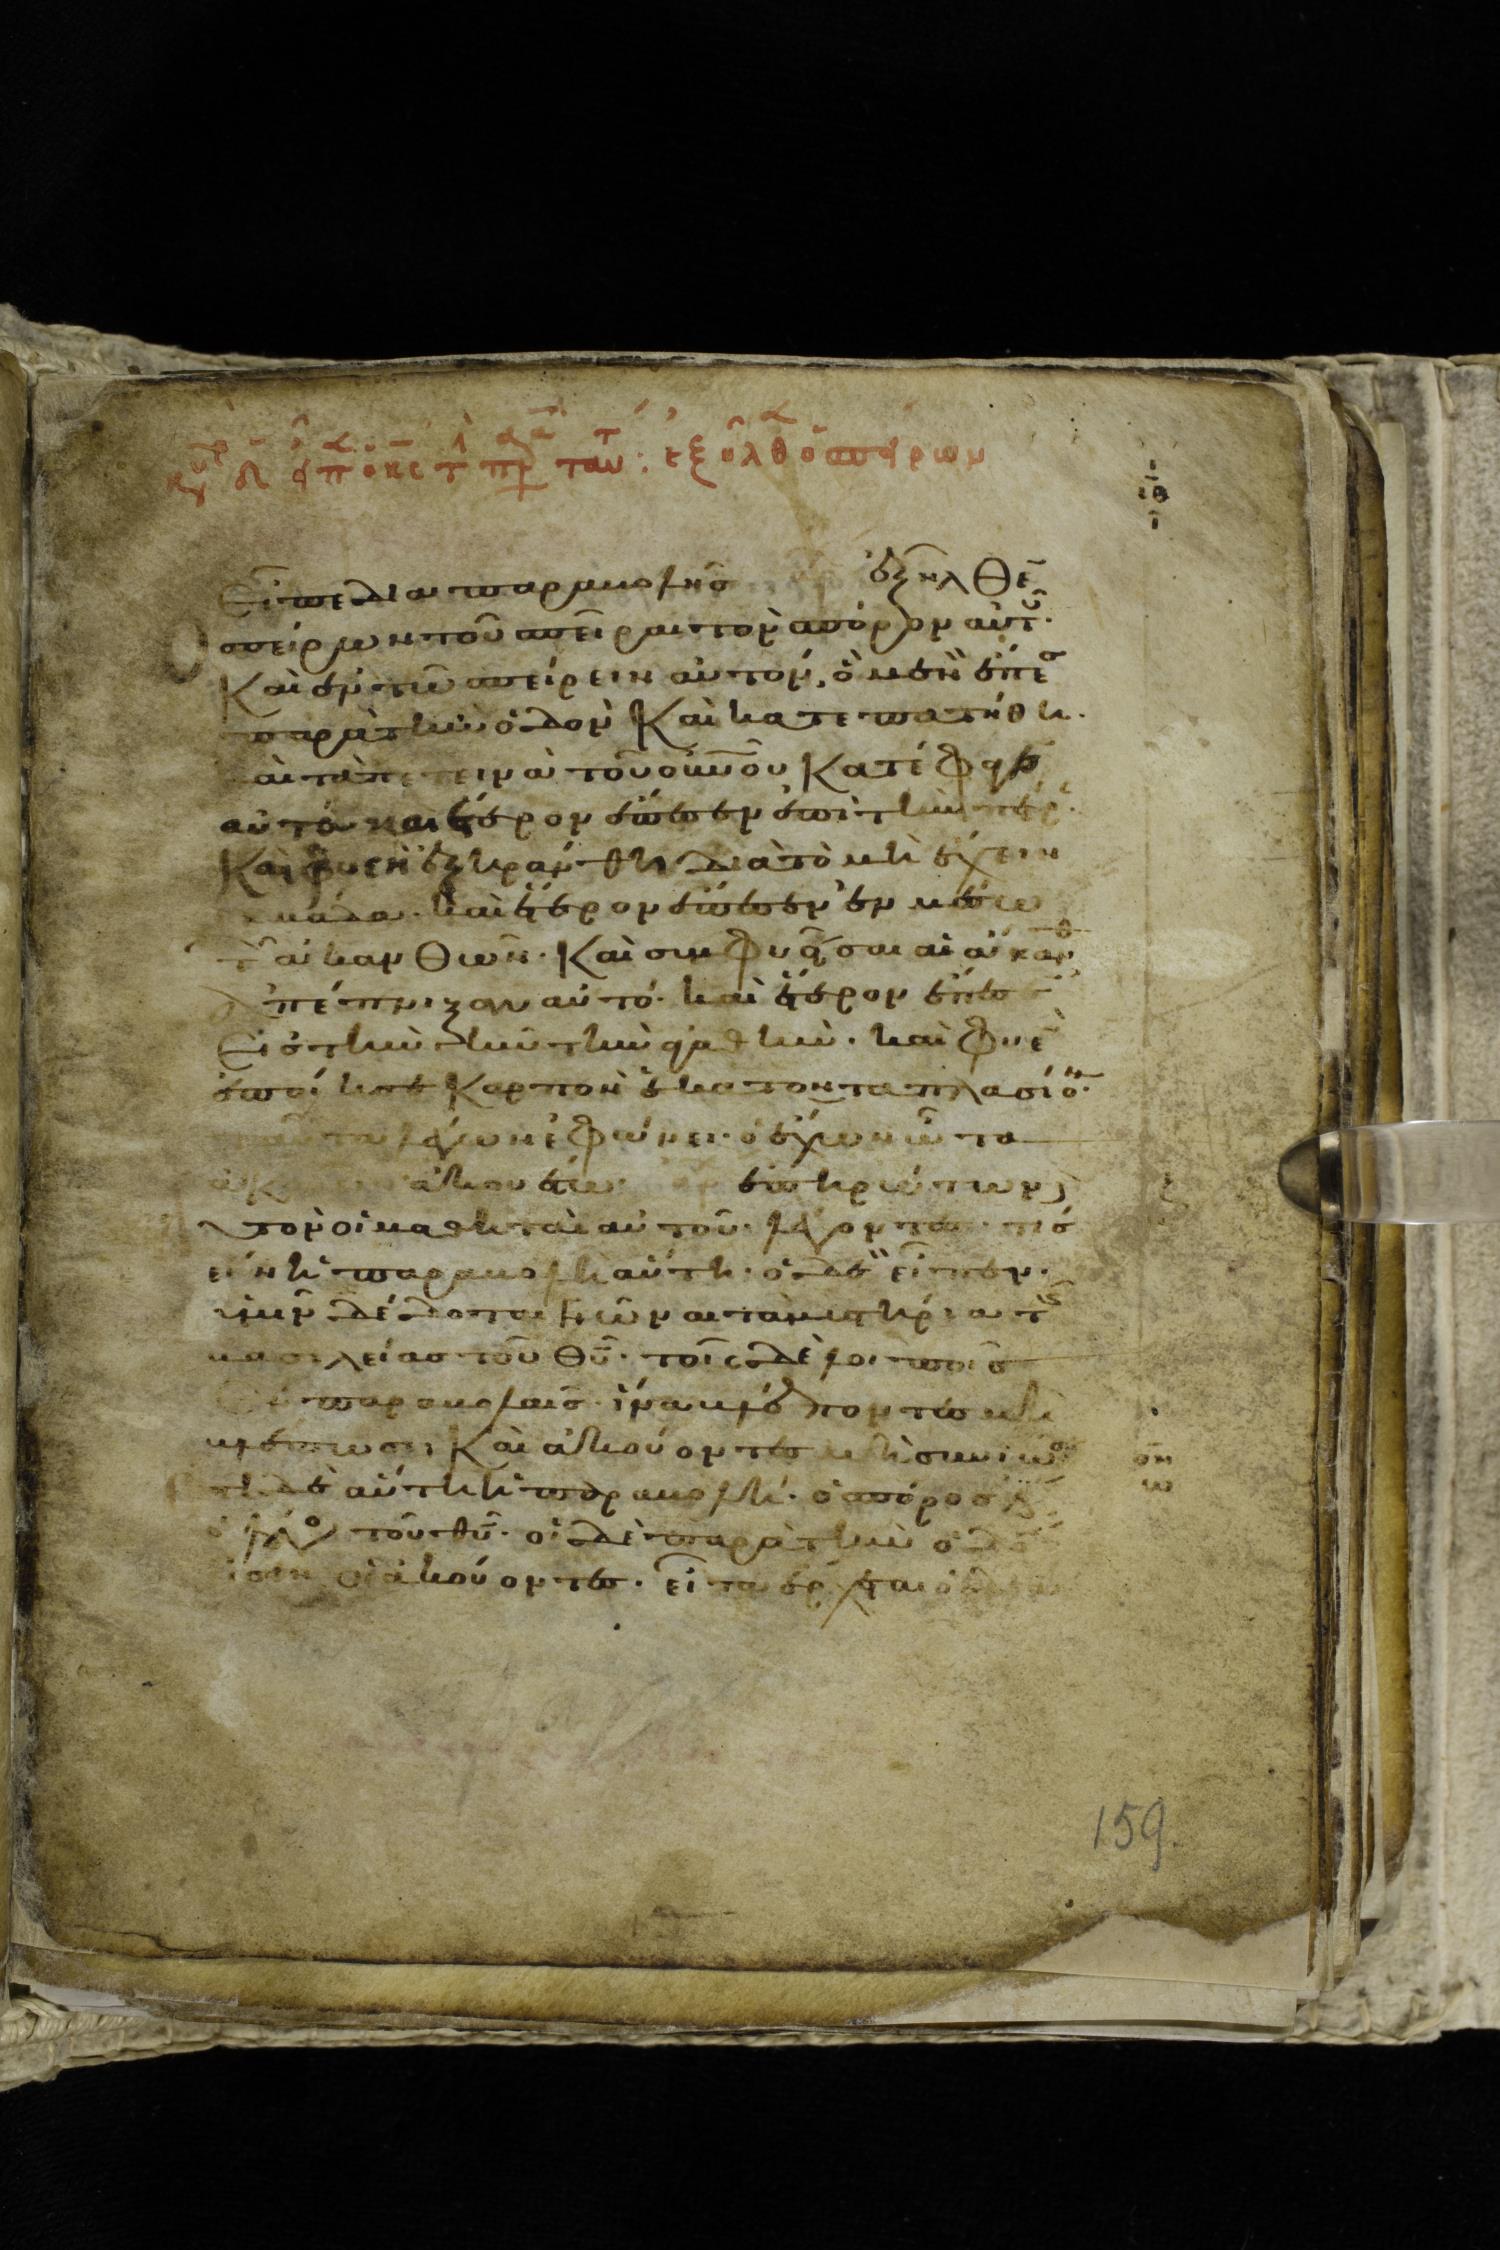 εἶπε δια παραβολῆς ἐξῆλθε
ὁ σπείρων τοῦ σπεῖραι τὸν σπόρον αὐτοῦ.
Καὶ ἐν τῶ σπείρειν αὐτόν, ὃ μὲν ἔπεσ
παρὰ τὴν ὁδὸν Καὶ κατεπατήθη.
αὶ τὰ πετεινὰ τοῦ οὐνοῦ Κατέφαγ
αὐτό καὶ ἕτερον ἔπεσεν ἐπὶ τὴν πέτρ
Καὶ φυὲν ἐξηράνθη διὰ τὸ μὴ ἔχειν
ἰκμάδα. καὶ ἕτερον ἔπεσεν ἐν μέσω
τῶν ἀκανθῶν. Καὶ συμφυεῖσαι αἱ ἄκανθ
ἀπέπνιξαν αὐτό. καὶ ἕτερον ἔπεσε
εἰς τὴν γῆν τὴν ἀγαθὴν. καὶ φυὲ
ἐποίησε Καρπὸν ἑκατονταπλασίο.
ταῦτα λέγων ἐφώνει. ὁ ἔχων ὦτα
ἀκούειν ἀκουέτω. ἐπηρώτων
τὸν οἱ μαθηταὶ αὐτοῦ. λέγοντες τίς
εἴη ἡ παραβολὴ αὕτη. ὁ δὲ εἶπεν.
ὑμῖν δέδοται γνῶναι τὰ μυστήρια τῆς
βασιλείας τοῦ θῦ. τοῖς δὲ λοιποῖς
ἐν παραβολαῖς. ἵνα βλέποντες μὴ
βλέπωσι Καὶ ἀκούοντες μὴ συνιῶσ
τι δὲ αὕτη ἡ παραβολή. ὁ σπόρος
ὁ λόγο τοῦ θῦ. οἱ δὲ παρὰ τὴν ὁδὸ
ἰσὶν οἱ ἀκούοντες. εἶτα ἔρχεται ὁ
159.